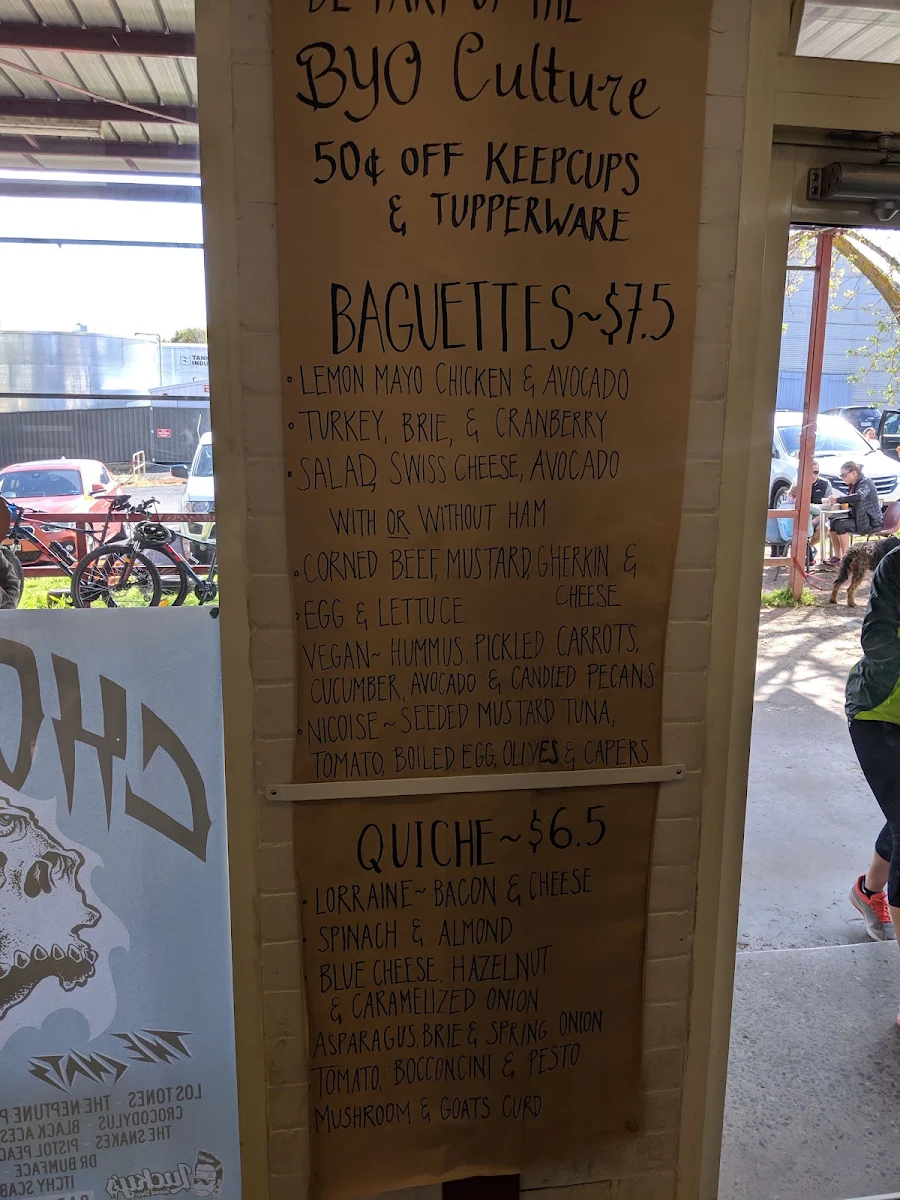 BE PART OF THE
BYO Culture
50¢ OFF KEEPCUPS
& TUPPERWARE
BAGUETTES~$7.5
• LEMON MAYO CHICKEN & AVOCADO
• TURKEY, BRIE, & CRANBERRY
• SALAD, SWISS CHEESE, AVOCADO
WITH OR WITHOUT HAM
• CORNED BEEF, MUSTARD, GHERKIN &
CHEESE
• EGG & LETTUCE
VEGAN~ HUMMUS, PICKLED CARROTS,
CUCUMBER, AVOCADO & CANDIED PECANS
• NICOISE~ SEEDED MUSTARD TUNA,
TOMATO, BOILED EGG, OLIVES & CAPERS
QUICHE~$6.5
• LORRAINE~ BACON & CHEESE
• SPINACH & ALMOND
BLUE CHEESE, HAZELNUT
& CARAMELIZED ONION
ASPARAGUS, BRIE & SPRING ONION
TOMATO, BOCCONCINI & PESTO
MUSHROOM & GOATS CURD
THE CHATS
LOS TONES - THE NEPTUNE
CROCODYLUS - BLACK ACES
THE SNAKES - PISTOL
DR BUMFACE
ITCHY
Lucky's
TANK